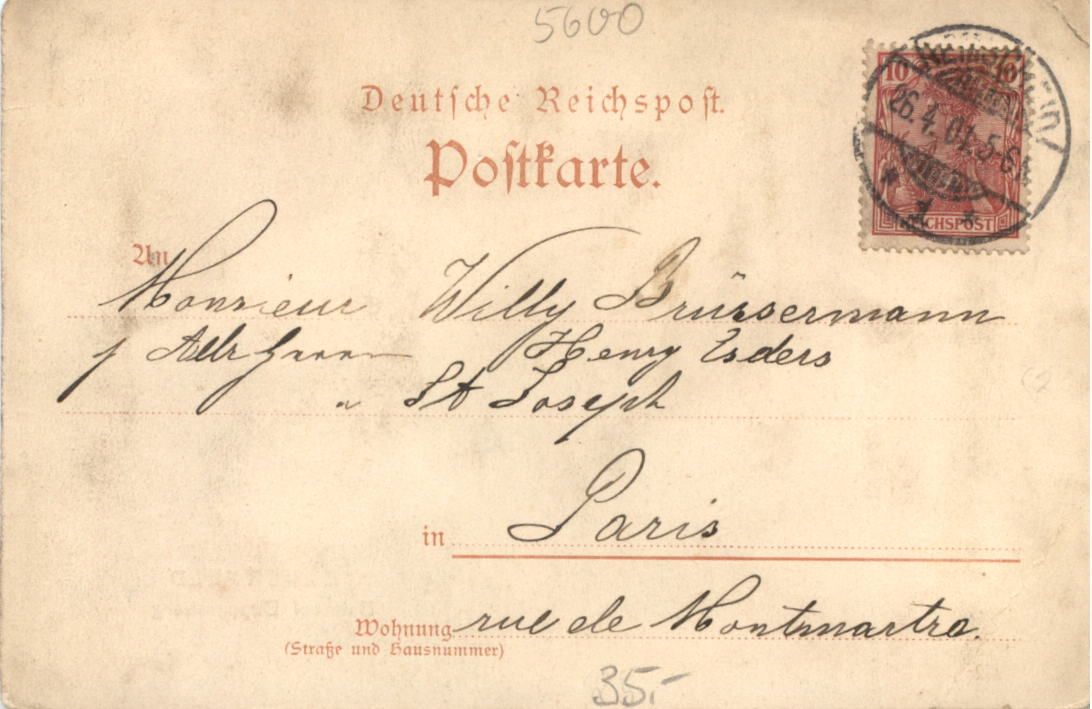 5600
Deutsche Reichspost.
Postkarte.
10 10
26.4.01.5-6N
REICHSPOST
An
Monsieur Willy Brüssermann
Henry Esders
" St Joseph
in Paris
Wohnung rue de Montmartre.
(Straße und Hausnummer)
35.-